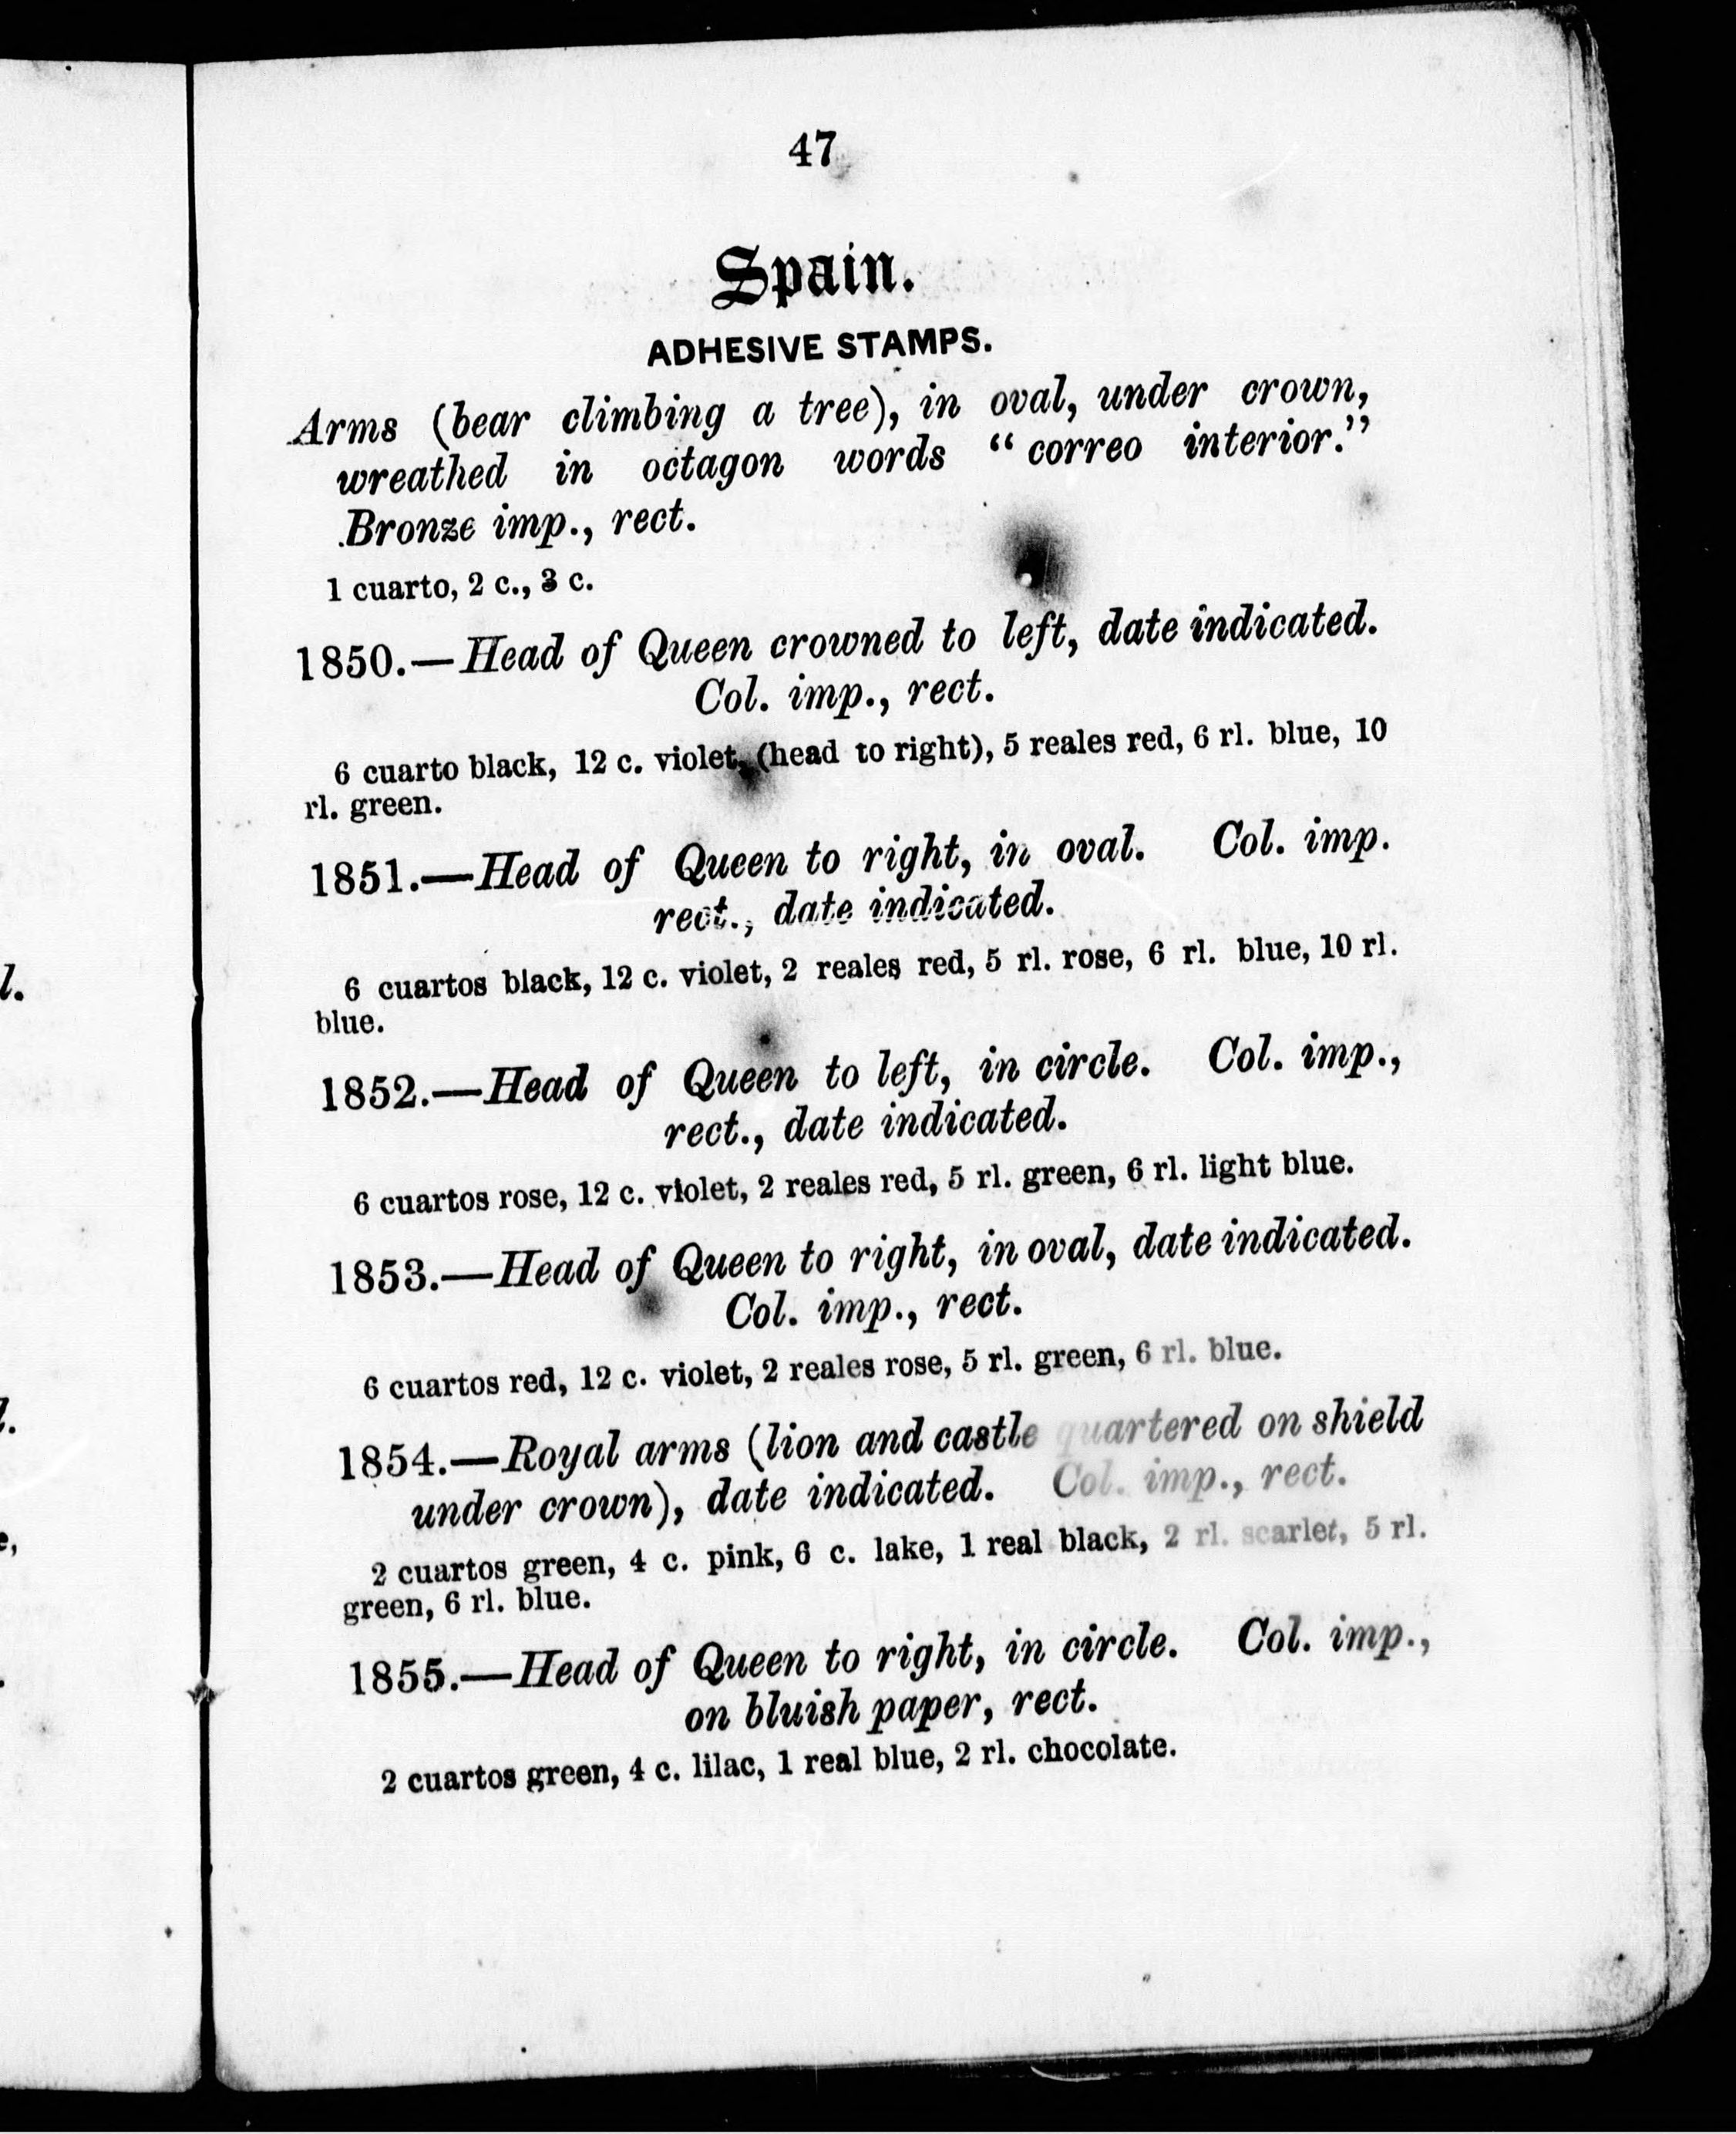 47
Spain.
ADHESIVE STAMPS.
Arms (bear climbing a tree), in oval, under crown,
wreathed in octagon words "correo interior."
Bronze imp., rect.
1 cuarto, 2 c., 3 c.
1850.—Head of Queen crowned to left, date indicated.
Col. imp., rect.
6 cuarto black, 12 c. violet, (head to right), 5 reales red, 6 rl. blue, 10
rl. green.
1851.—Head of Queen to right, in oval. Col. imp.
rect., date indicated.
6 cuartos black, 12 c. violet, 2 reales red, 5 rl. rose, 6 rl. blue, 10 rl.
blue.
1852.—Head of Queen to left, in circle. Col. imp.,
rect., date indicated.
6 cuartos rose, 12 c. violet, 2 reales red, 5 rl. green, 6 rl. light blue.
1853.—Head of Queen to right, in oval, date indicated.
Col. imp., rect.
6 cuartos red, 12 c. violet, 2 reales rose, 5 rl. green, 6 rl. blue.
1854.—Royal arms (lion and castle quartered on shield
under crown), date indicated. Col. imp., rect.
2 cuartos green, 4 c. pink, 6 c. lake, 1 real black, 2 rl. scarlet, 5 rl.
green, 6 rl. blue.
1855.—Head of Queen to right, in circle. Col. imp.,
on bluish paper, rect.
2 cuartos green, 4 c. lilac, 1 real blue, 2 rl. chocolate.